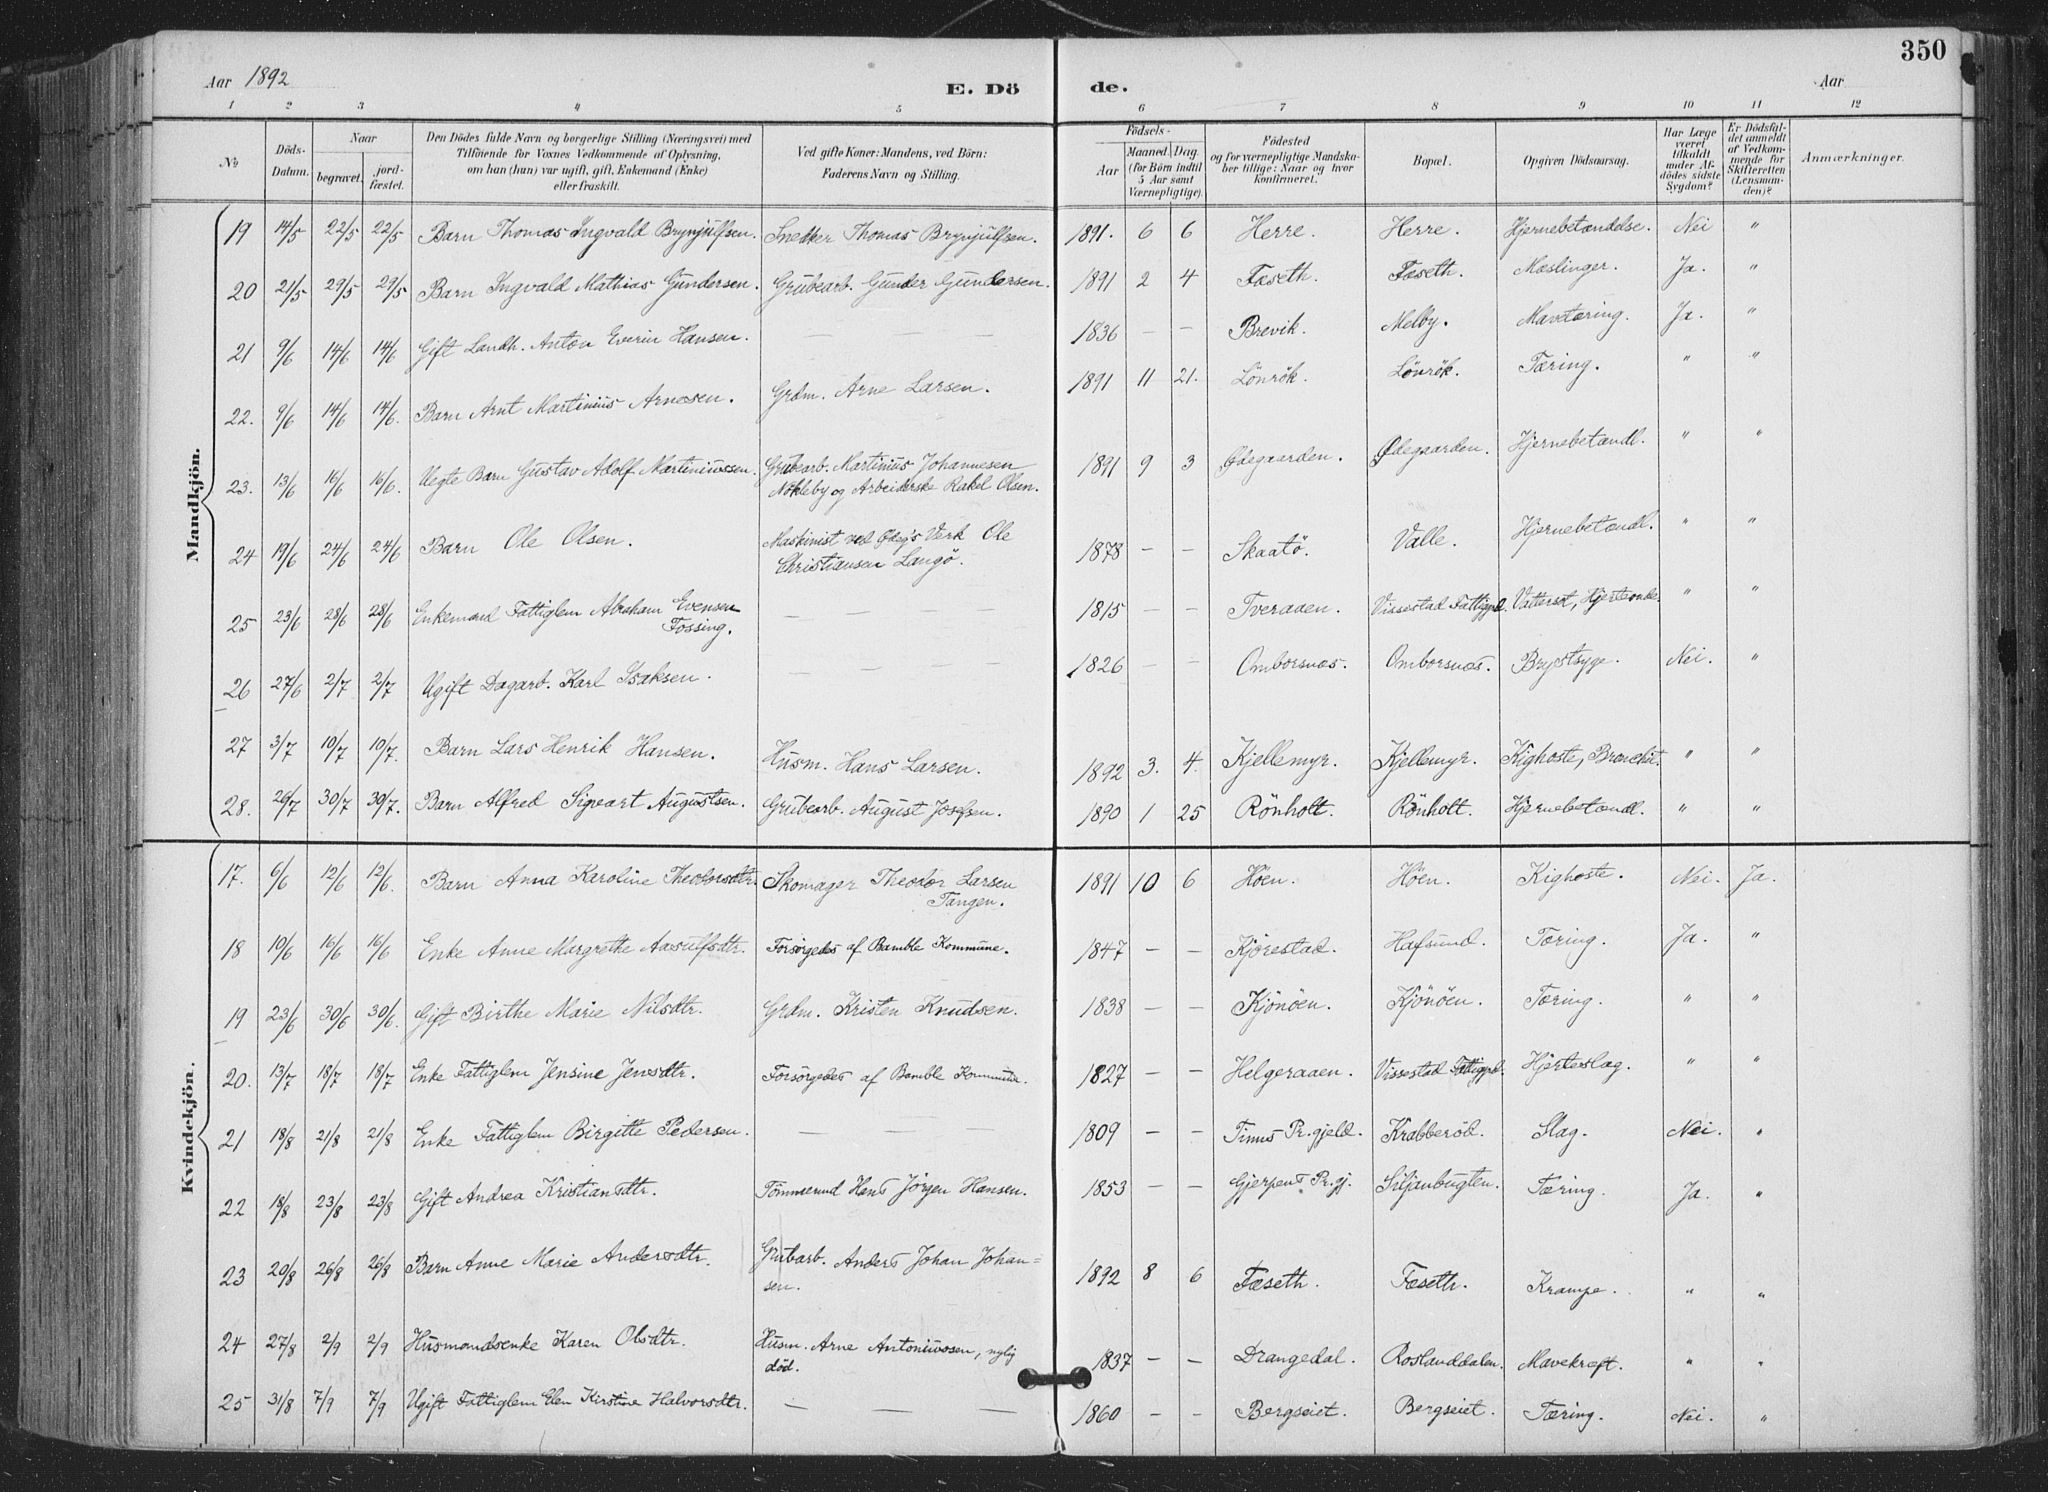 350
Aar 1892 E. Dö de. Aar
1 2 3 4 5 6 7 8 9 10 11 12
No
Döds-Datum.
Naar
begravet.
jord-fæstet.
Den Dödes fulde Navn og borgerlige Stilling (Næringsvei) med
Tilföiende for Voxnes Vedkommende af Oplysning,
om han (hun) var ugift, gift, Enkemand (Enke)
eller fraskilt.
Ved gifte Koner: Mandens, ved Börn:
Faderens Navn og Stilling.
Födsels-
Aar
Maaned. Dag.
(for Börn indtil
5 Aar samt
Værnepligtige).
Födested
og for værnepligtige Mandska-
ber tillige: Naar og hvor
konfirmeret.
Bopæl.
Opgiven Dödsaarsag.
Har Læge
været
tilkaldt
under Af-
dödes sidste
Sygdom?
Er Dödsfal-
det anmeldt
af Vedkom-
mende for
Skifteretten
(Lensman-
den)?
Anmærkninger.
Mandkjön.
19 14/5 22/5 22/5 Barn Thomas Ingvald Brynjulfsen. Snekker Thomas Brynjulfsen. 1891. 6 6 Herre. Herre. Hjernebetændelse. Nei "
20 21/5 29/5 29/5 Barn Ingvald Mathias Gundersen. Grubearb. Gunder Gundersen. 1891 2 4 Fæseth. Fæseth. Mæslinger. Ja. "
21 9/6 14/6 14/6 Gift Landh. Anton Everin Hansen. — — 1836 — — Brevik. Melby. Mavetæring. Ja. "
22. 9/6 14/6 14/6. Barn Arnt Martinius Arnesen. Grdm. Arne Larsen. 1891 11 21. Lönrök. Lönrök. Tæring. " "
23. 13/6 16/6 16/6. Uegte Barn Gustav Adolf Martiniussen. Grubearb. Martinius Johannesen
Nökleby og Arbeiderske Rakel Olsen. 1891 9 3 Ödegaarden. Ödegaarden. Hjernebetændl. " "
24 19/6 24/6 24/6 Barn Ole Olsen. Maskinist ved Ödeg's Verk Ole
Christiansen Langö. 1878 — — Skaatö. Valle. Hjernebetændl. " "
25 23/6 28/6 28/6 Enkemand Fattiglem Abraham Evensen
Fossing. — 1815 — — Tveraaen. Vissestad Fattiggd. Vattersot, Hjerteonde. " "
26 27/6 2/7 2/7 Ugift Dagarb. Karl Isaksen. — — — — 1826 — — Omborsnæs. Omborsnæs. Brystsyge. Nei. "
27 3/7 10/7 10/7. Barn Lars Henrik Hansen. Husm. Hans Larsen. 1892 3. 4. Kjellemyr. Kjellemyr. Kighoste, Bronchit. " "
28. 26/7 30/7 30/7. Barn Alfred Sigvart Augustsen. Grubearb. August Josefsen. 1890 1 25 Rönholt. Rönholt. Hjernebetændl. " "
Kvindekjön.
17. 6/6 12/6 12/6. Barn Anna Karoline Theodorsdtr. Skomager Theodor Larsen
Tangen. 1891 10 6 Höen. Höen. Kighoste. Nei. Ja.
18 10/6 16/6 16/6 Enke Anne Margrethe Aasulfsdtr. Forsörgedes af Bamble Kommune. 1847 — — Kjörestad. Hafsund. Tæring. Ja. "
19 23/6 30/6 30/6. Gift Birthe Marie Nilsdtr. Grdm. Kristen Knudsen. 1838 — — Kjönöen. Kjönöen. Tæring. " "
20. 13/7 18/7 18/7 Enke Fattiglem Jensine Jensdtr. Forsörgedes af Bamble Kommune. 1827 — — Helgeraaen. Vissestad Fattiggd. Hjerteslag. " "
21 18/8 21/8 21/8 Enke Fattiglem Birgitte Pedersen. — — — 1809 — — Tinns Pr.gjeld. Krabberöd. Slag. Nei. "
22 18/8 23/8 23/8 Gift Andrea Kristiansdtr. Tömmermd Hans Jörgen Hansen. 1853 — — Gjerpens Pr.gj. Siljanbugten. Tæring. Ja. "
23 20/8 26/8 26/8 Barn Anne Marie Andersdtr. Grubarb. Anders Johan Johan-
sen. 1892 8 6 Fæseth. Fæseth. Krampe. " "
24 27/8 2/9 2/9 Husmandsenke Karen Olsdtr. Husm. Arne Antoniussen, nylig
död. 1837 — — Drangedal. Roslanddalen. Mavekræft. " "
25 31/8 7/9 7/9 Ugift Fattiglem Elen Kirstine Halvorsdtr. — — — 1860 — — Bergseiet. Bergseiet. Tæring. Nei. "